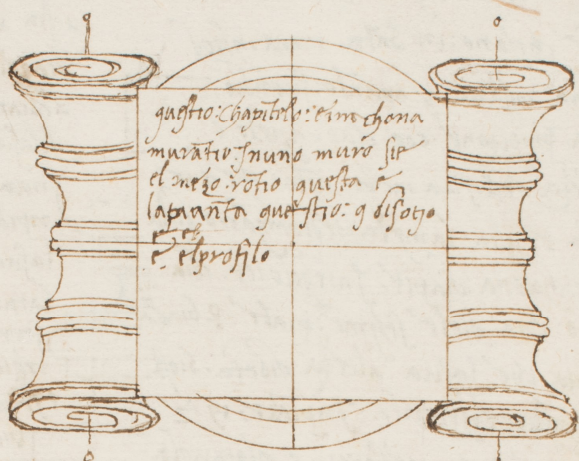 questio: Chapitelo: e in chona
muratio: in uno muro sie
el mezo: rotio questa e
la pianta questio: q disotio
e el
e. elprofilo